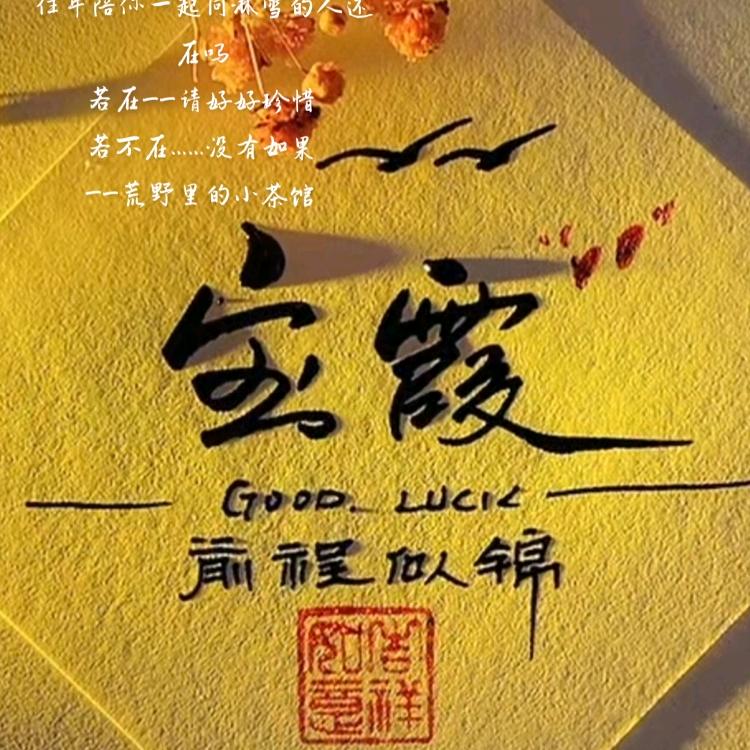 往年陪你一起同淋雪的人还
在吗
若在--请好好珍惜
若不在......没有如果
--荒野里的小茶馆
宝霞
GOOD. LUCK
前程似锦
吉祥
如意